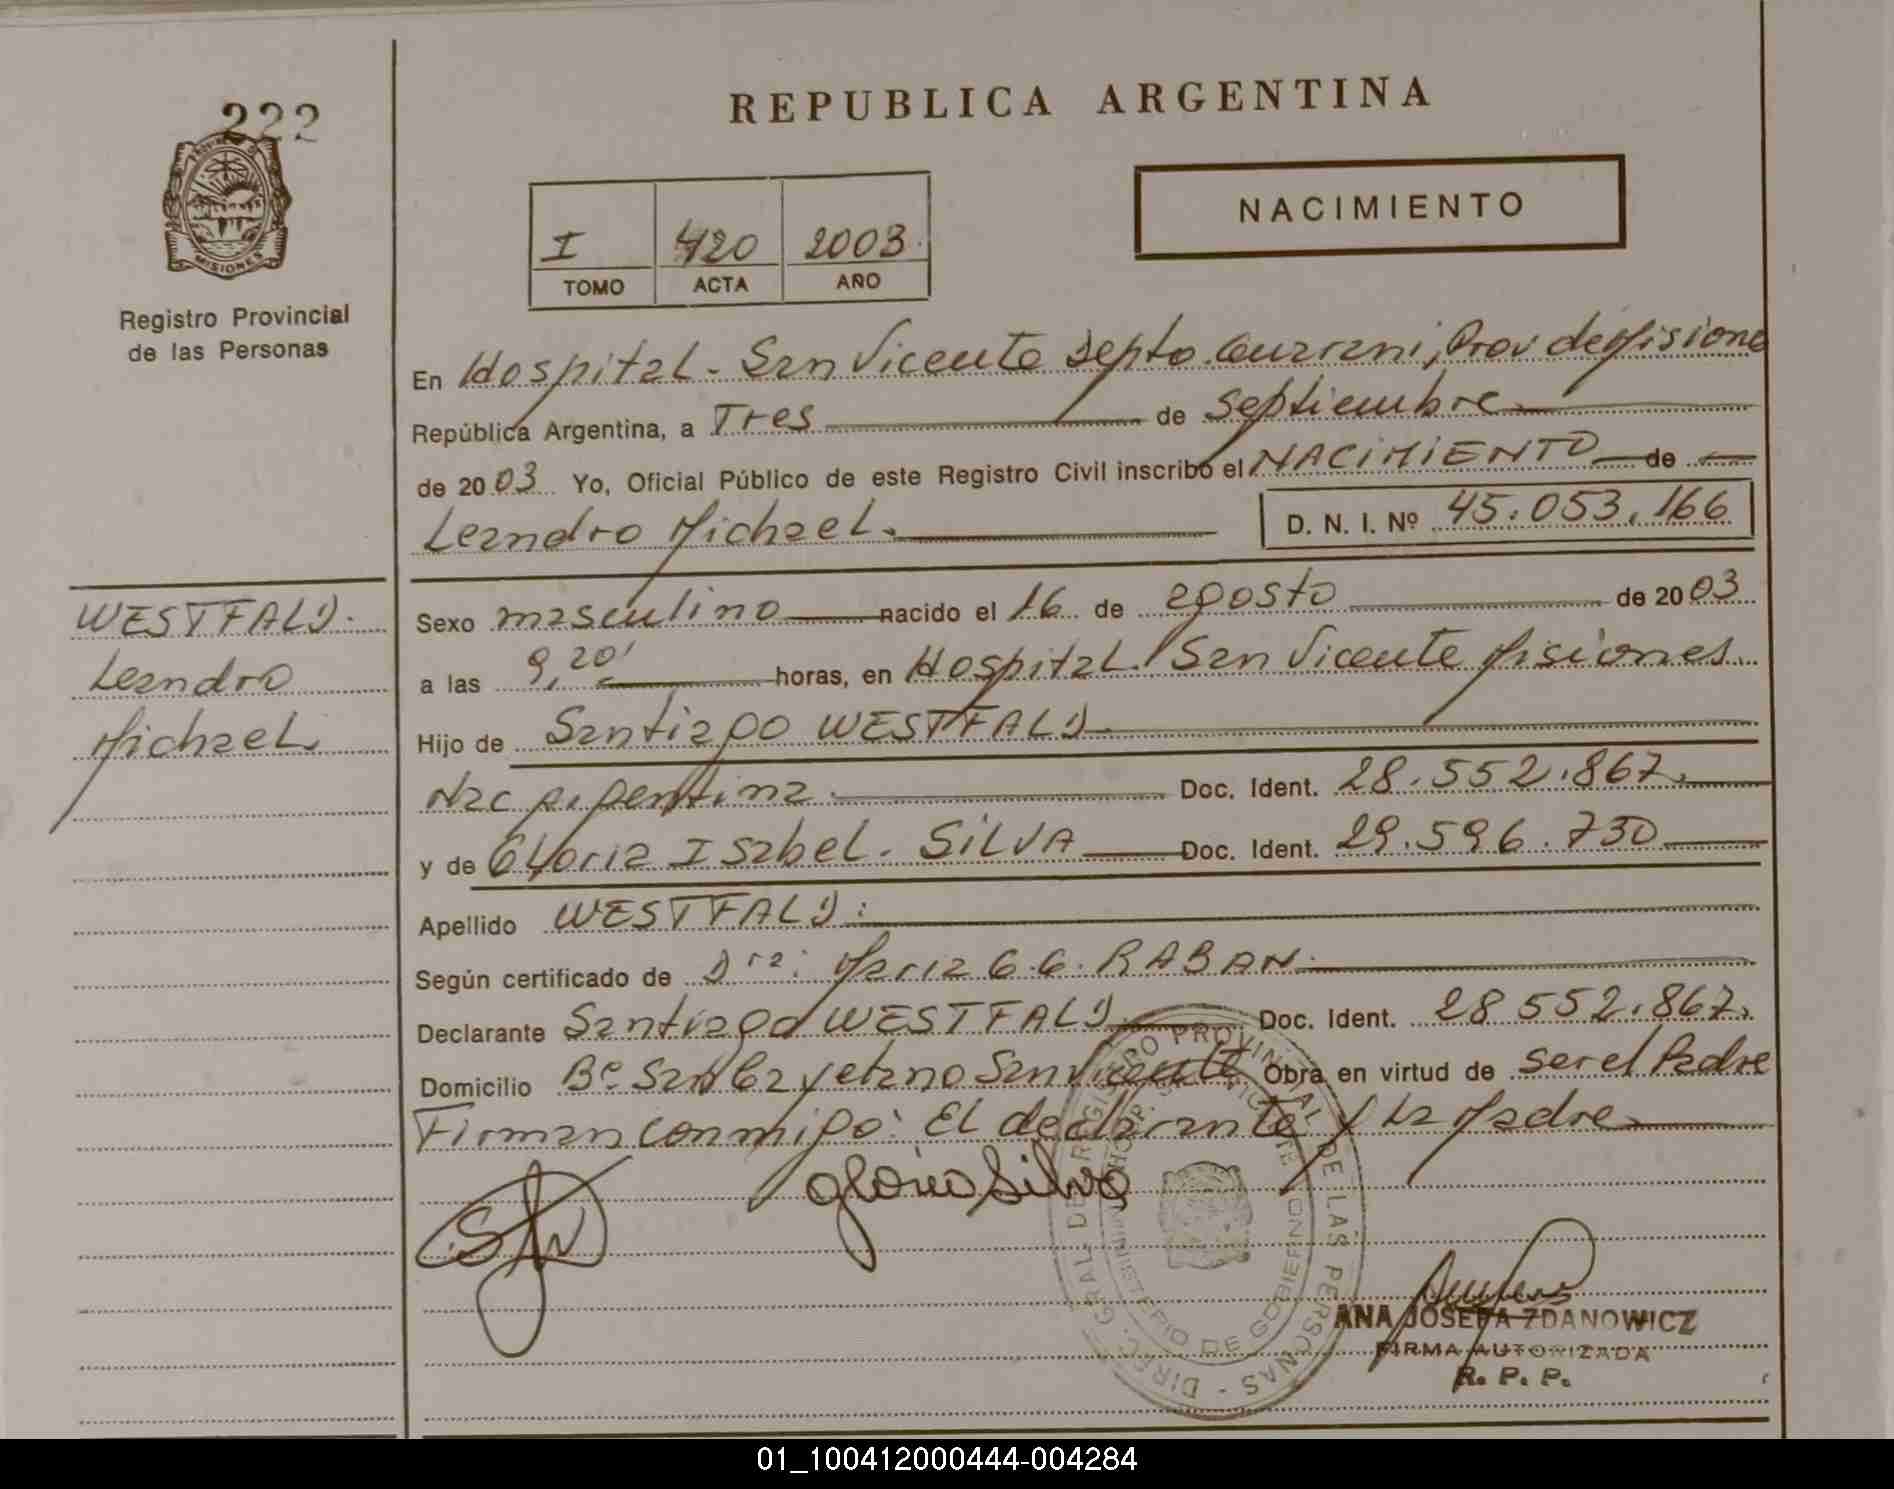 222
MISIONES
Registro Provincial
de las Personas
REPUBLICA ARGENTINA
NACIMIENTO
I 420 2003
TOMO ACTA AÑO
En Hospital - San Vicente Depto. Guarani, Prov de Misiones
República Argentina, a Tres de Septiembre
de 2003 Yo, Oficial Público de este Registro Civil inscribo el NACIMIENTO de
Leandro Michael. D. N. I. Nº 45.053.166
WESTFALD.
Leandro
Michael.
Sexo masculino nacido el 16 de agosto de 2003
a las 9,20' horas, en Hospital. San Vicente Misiones.
Hijo de Santiago WESTFALD
Nac argentina. Doc. Ident. 28.552.867.
y de Gloria Isabel. SILVA Doc. Ident. 29.596.730
Apellido WESTFALD:
Según certificado de Dra: Maria G.G. RABAN.
Declarante Santiago WESTFALD Doc. Ident. 28 552.867.
Domicilio Bº San Cayetano San Vicente Obra en virtud de ser el Padre
Firman conmigo: El declarante y la Madre
gloria Silva
DIREC. GRAL. DE REGISTRO PROVINCIAL DE LAS PERSONAS
MINISTERIO DE GOBIERNO
ANA JOSEFA ZDANOWICZ
FIRMA AUTORIZADA
R. P. P.
01_100412000444-004284